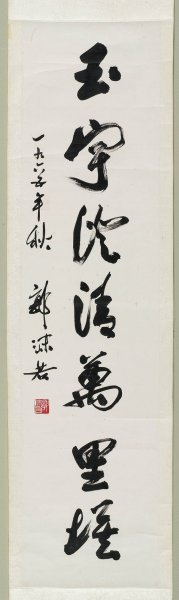 玉宇澄清萬里埃
一九六五年秋
郭沫若